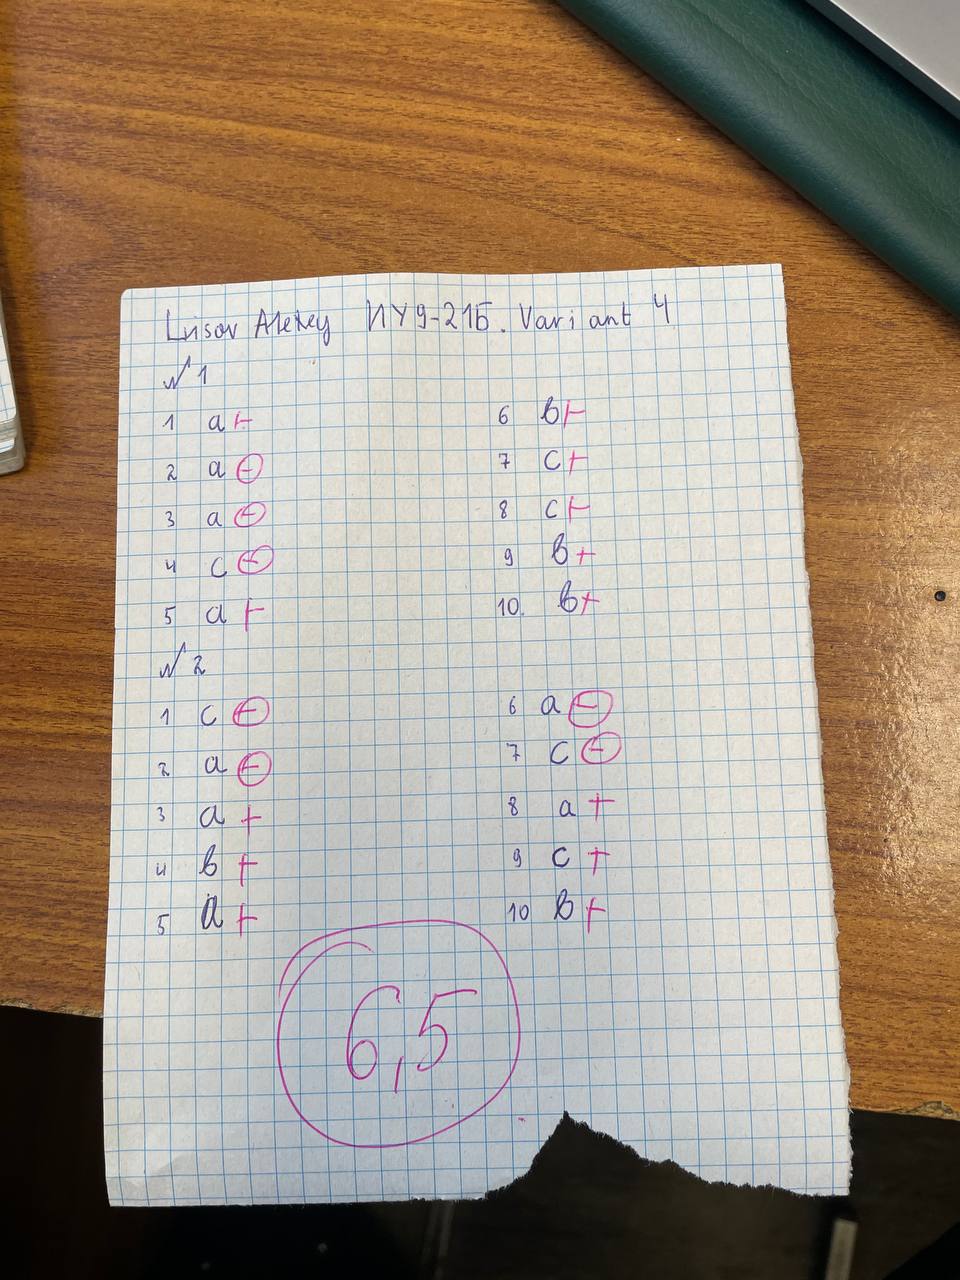 Lusov Alexey ИУ9-21Б. Variant 4
№ 1
1 a +
2 a ⊖
3 a ⊖
4 c ⊖
5 a +
6 b +
7 c +
8 c +
9 b +
10. b +
№ 2
1 c ⊖
2 a ⊖
3 a +
4 b +
5 a +
6 a ⊖
7 c ⊖
8 a +
9 c +
10 b +
6,5